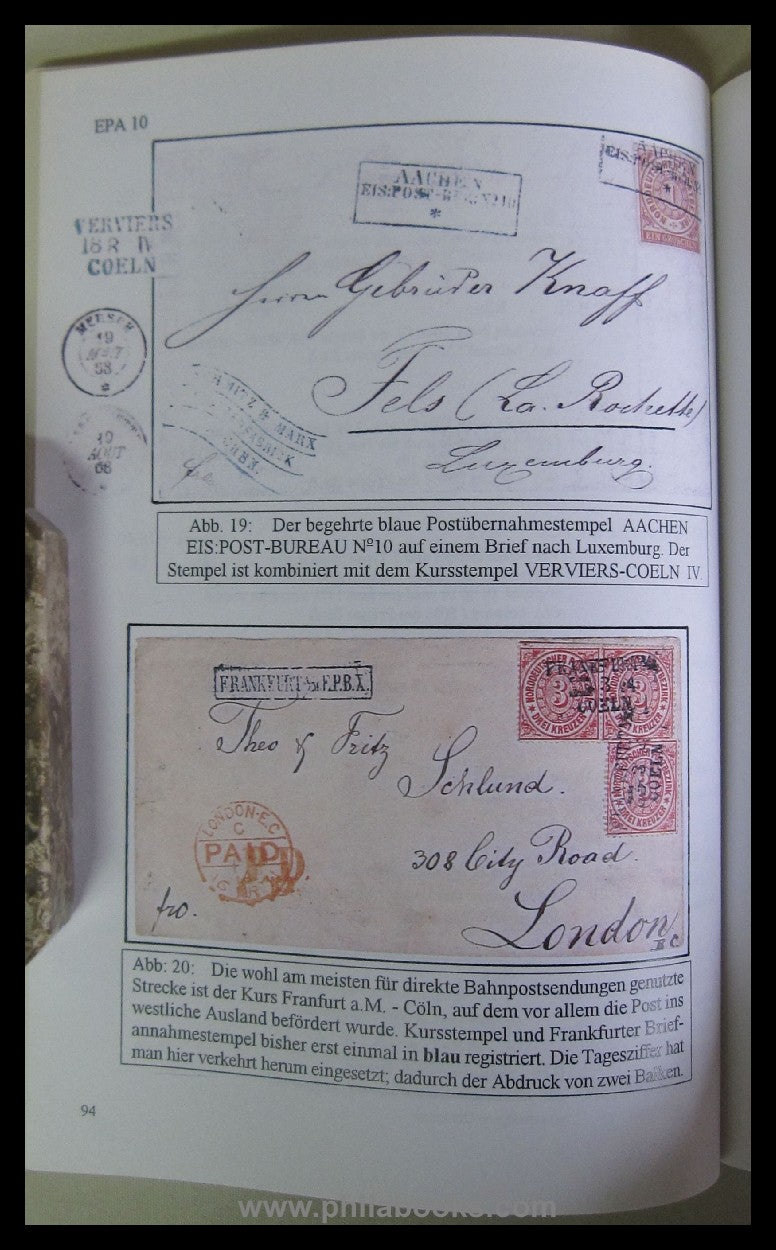 EPA 10
AACHEN
EIS:POST-BUREAU Nº10
*
AACHEN
EIS:POST-
*
EIN GROSCHEN
VERVIERS
18 R IV
COELN
Herrn Gebrüder Knaff
MERSCH
19
68
*
Fels (La. Rochette)
& MARX
Luxemburg.
19
AOUT
68
Abb. 19: Der begehrte blaue Postübernahmestempel AACHEN
EIS:POST-BUREAU Nº10 auf einem Brief nach Luxemburg. Der
Stempel ist kombiniert mit dem Kursstempel VERVIERS-COELN IV.
FRANKFURT a/M E.P.B.X.
FRANKFURT
COELN
3
DREI KREUZER
COELN
DREI KREUZER
Theo & Fritz
Schlund.
LONDON-E.C
C
PAID
308 City Road.
fro.
London
EC
Abb: 20: Die wohl am meisten für direkte Bahnpostsendungen genutzte
Strecke ist der Kurs Franfurt a.M. - Cöln, auf dem vor allem die Post ins
westliche Ausland befördert wurde. Kursstempel und Frankfurter Brief-
annahmestempel bisher erst einmal in blau registriert. Die Tagesziffer hat
man hier verkehrt herum eingesetzt; dadurch der Abdruck von zwei Balken.
94
www.philabooks.com